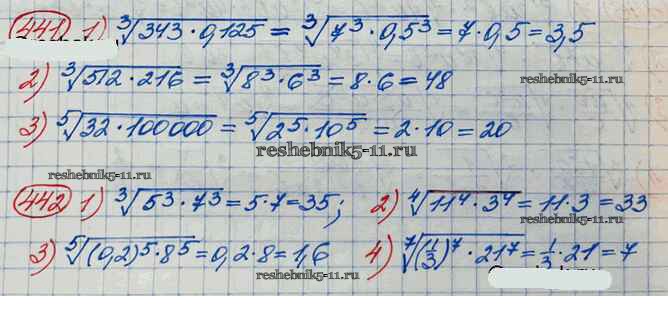 441 1) ∛(343·0,125) = ∛(7³·0,5³) = 7·0,5 = 3,5
2) ∛(512·216) = ∛(8³·6³) = 8·6 = 48
reshebnik5-11.ru
3) ⁵√(32·100000) = ⁵√(2⁵·10⁵) = 2·10 = 20
reshebnik5-11.ru
442 1) ∛(5³·7³) = 5·7 = 35; 2) ⁴√(11⁴·3⁴) = 11·3 = 33
reshebnik5-11.ru
3) ⁵√((0,2)⁵·8⁵) = 0,2·8 = 1,6 4) ⁷√((1/3)⁷·21⁷) = 1/3·21 = 7
reshebnik5-11.ru